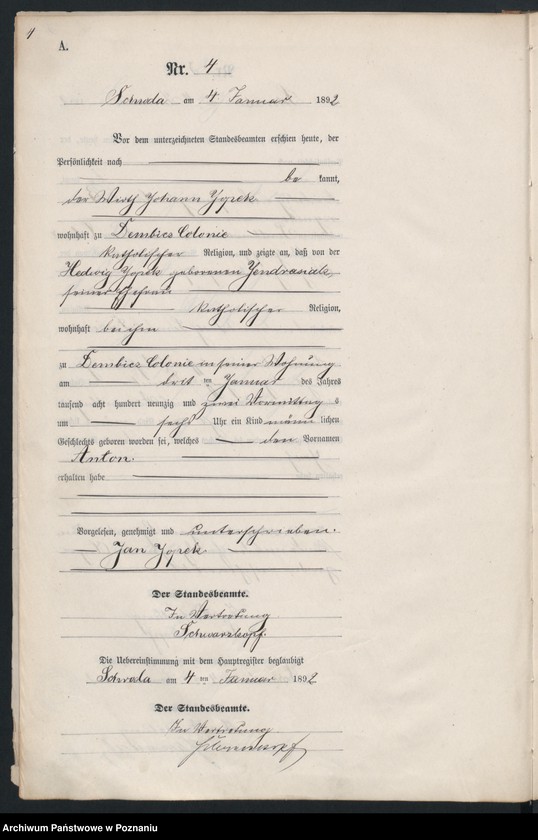 4
A.
Nr. 4
Schroda am 4 Januar 1892
Vor dem unterzeichneten Standesbeamten erschien heute, der
Persönlichkeit nach
be kannt,
der Wirth Johann
wohnhaft zu Dembicz Colonie
katholischer Religion, und zeigte an, daß von der
Hedwig geborenen Jendrasiak,
seiner Ehefrau
katholischer Religion,
wohnhaft bei ihm
zu Dembicz Colonie in seiner Wohnung
am dritten Januar des Jahres
tausend acht hundert neunzig und zwei Vormittags
um sechs Uhr ein Kind männlichen
Geschlechts geboren worden sei, welches den Vornamen
Anton.
erhalten habe
Vorgelesen, genehmigt und unterschrieben.
Jan
Der Standesbeamte.
In Vertretung
Schwarzkopf.
Die Uebereinstimmung mit dem Hauptregister beglaubigt
Schroda am 4ten Januar 1892
Der Standesbeamte.
In Vertretung
Schwarzkopf
Archiwum Państwowe w Poznaniu